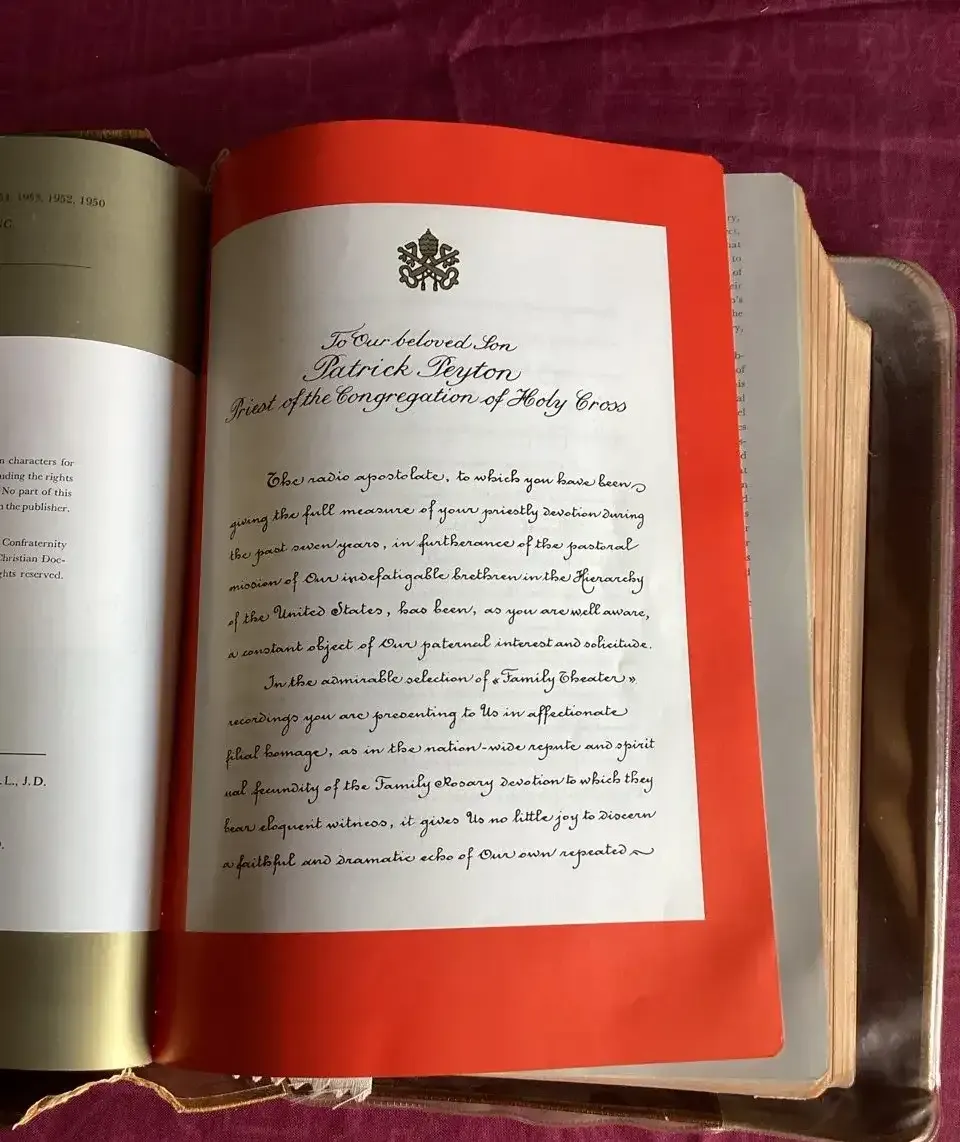 1953, 1952, 1950
n characters for
uding the rights
No part of this
n the publisher.
Confraternity
Christian Doc-
ghts reserved.
.L., J.D.
To Our beloved Son
Patrick Peyton
Priest of the Congregation of Holy Cross
The radio apostolate, to which you have been
giving the full measure of your priestly devotion during
the past seven years, in furtherance of the pastoral
mission of Our indefatigable brethren in the Hierarchy
of the United States, has been, as you are well aware,
a constant object of Our paternal interest and solicitude.
In the admirable selection of «Family Theater»
recordings you are presenting to Us in affectionate
filial homage, as in the nation-wide repute and spirit
ual fecundity of the Family Rosary devotion to which they
bear eloquent witness, it gives Us no little joy to discern
a faithful and dramatic echo of Our own repeated